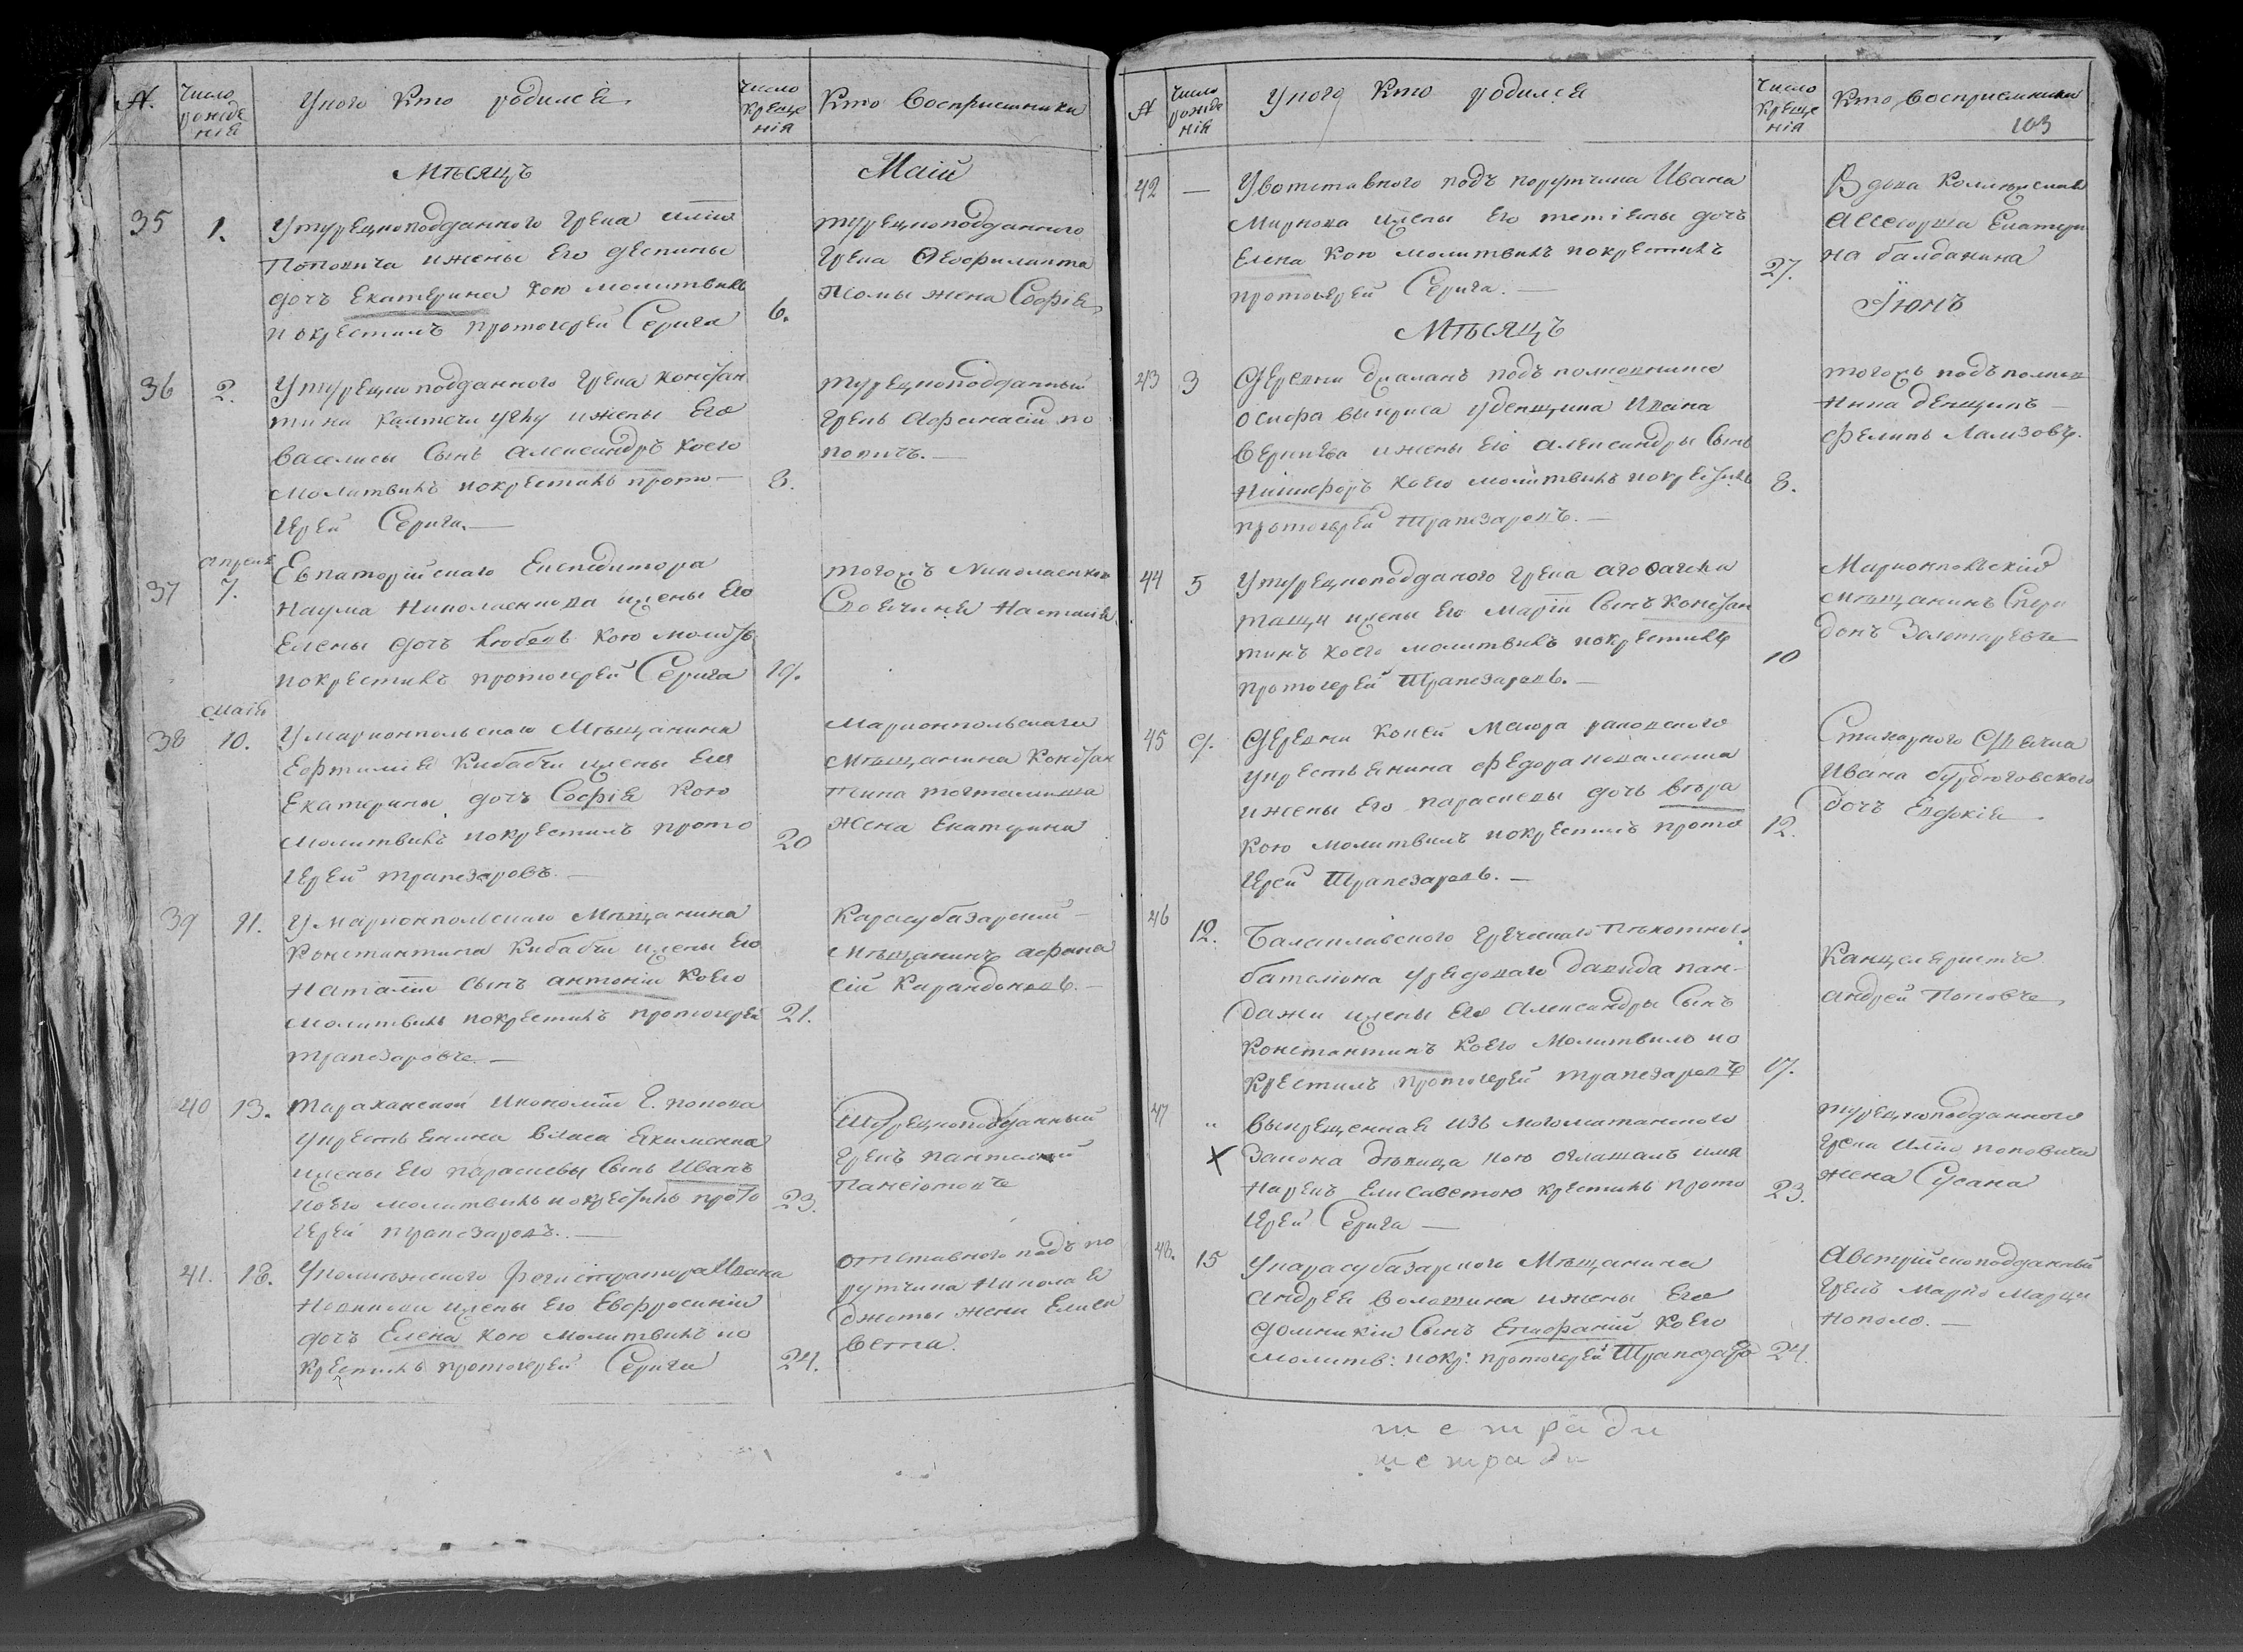 №.
Число
рожде
нія
У кого Кто родился
Число
Креще
нія
Кто Восприемники
Мѣсяцъ
Маій
35
1.
У турецкоподданного Грека Иліи
Поповича и жены Его Деспины
дочь Екатерина кою молитвилъ
и окрестилъ протоіерей Серига
6.
турецкоподданного
Грека Ѳеофилакта
жена Софія
36
2.
У турецкоподданного Грека Констан
тина и жены Его
Василисы Сынъ Александръ Коего
Молитвилъ и окрестилъ прото
Іерей Серига.
8.
турецкоподданный
Грекъ Афанасій по
повичъ.
Апреля
37
7.
Евпаторійскаго Експедитора
Наума Николаенкова и жены Его
Елены дочь Любовь Кою молитв
и окрестилъ протоіерей Серига
19.
тогожъ Николаенкова
Своячина Наталія
Маія
38
10.
У Маріонпольскаго Мѣщанина
Ефтимія Кибабчи и жены Его
Екатерины дочь Софія Кою
Молитвилъ и окрестилъ прото
Іерей Трапезаровъ.
20
Маріонпольскаго
Мѣщанина Констан
тина
Жена Екатерина
39
11.
У Маріонпольскаго Мѣщанина
Константина Кибабчи и жены Его
Наталіи сынъ Антоній Коего
Молитвилъ и окрестилъ протоіерей
Трапезаровъ.
21.
Карасубазарскій
Мѣщанинъ Афана
сій Карандоковъ.
40
13.
Тараханской Икономіи Г. Попова
у крестьянина Власа Якименка
и жены Его Параскевы Сынъ Иванъ
Коего молитвилъ и окрестилъ прото
Іерей Трапезаровъ.
23.
Турецкоподданный
Грекъ Пантелей
41.
18.
У колижского регистратора Ивана
и жены Его Евфросиніи
дочь Елена кою молитвилъ и о
крестилъ протоіерей Серига
24.
отставного подъ по
рутчика Николая
Джоты жена Елиса
вета.
№
Число
рожде
нія
У кого Кто родился
Число
Креще
нія
Кто Восприемники
103
42
—
У вотставного подъ порутчика Ивана
Маркова и жены Его дочь
Елена Кою молитвилъ и окрестилъ
протоіерей Серига.
27.
Вдова Коллежская
Ассесорша Екатери
на Балданина
Мѣсяцъ
Іюнь
43
3
Деревни подъ полковника
Осифа у денщика Ивана
и жены Его Александры Сынъ
Никифоръ Коего молитвилъ и окрестилъ
протоіерей Трапезаровъ.
8.
тогожъ подъ полков
ника денщикъ
Филипъ
44
5
У турецкоподданого Грека
и жены Его Маріи Сынъ Констан
тинъ Коего молитвилъ и окрестилъ
протоіерей Трапезаровъ.
10
Маріонпольскій
Мѣщанинъ Спири
донъ Золотаревъ
45
9.
Деревни Коней Маіора
у крестьянина Федора Коваленка
и жены Его Параскевы дочь Вѣра
Кою молитвилъ и окрестилъ прото
Іерей Трапезаровъ.
12.
Стихарного Дьячка
Ивана
дочь Евдокія
46
12.
Балаклавского Греческаго Пѣхотного
баталіона у рядоваго Давида Пан
дажи и жены Его Александры Сынъ
Константинъ Коего Молитвилъ и о
Крестилъ протоіерей Трапезаровъ
17.
Канцеляристъ
Андрей Поповъ
47
"
Х
Выкрещенная изъ Могометанского
Закона дѣвица кою оглашалъ имя
Нарекъ Елисаветою крестилъ прото
Іерей Серига
23.
турецкоподданного
Грека Иліи Поповича
жена Сусана
48.
15
У карасубазарского Мѣщанина
Андрея Болотина и жены Его
Домникіи Сынъ Епифаній Коего
молитв: и окр: протоіерей Трапезаро
24.
Австрійскоподданный
Грекъ Марко Марци
нополо.
тетради
тетради